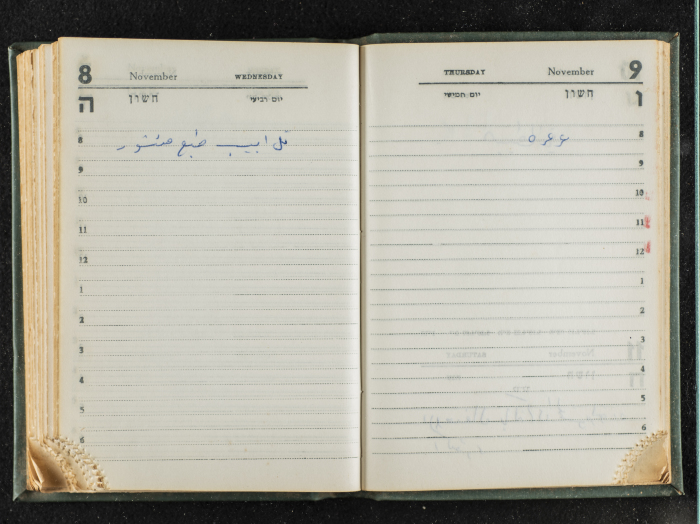 8 November WEDNESDAY
ה חשון יום רביעי
8 تل ابيب طبع منشور
9
10
11
12
1
2
3
4
5
6
THURSDAY November 9
יום חמישי חשון ו
8
9
10
11
12
1
2
3
4
5
6